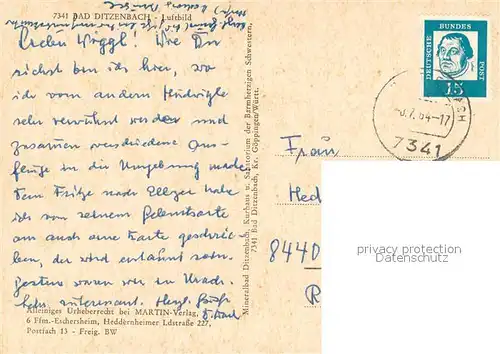 7341 BAD DITZENBACH - Luftbild
Lieber Wiggl! Wie Du
siehst bin ich hier, wo
ich vom andern Hedwigle
sehr verwöhnt werde und
zusammen verschiedene Aus-
flüge in die Umgebung mache.
Dem Fritze nach habe
ich von seinem Geburtsorte
am auch eine Karte geschrie-
ben, der wird erstaunt sein.
Gestern waren wir in Urach.
Sehr interessant. Herzl. Grüße
Alleiniges Urheberrecht bei MARTIN-Verlag,
6 Ffm.-Eschersheim, Heddernheimer Ldstraße 227,
Postfach 13 - Freig. BW
Mineralbad Ditzenbach, Kurhaus u. Sanatorium der Barmherzigen Schwestern,
7341 Bad Ditzenbach, Kr. Göppingen/Württ.
DEUTSCHE BUNDES POST
15
7.64-17
7341
Frau
Hed
8440
R
privacy protection